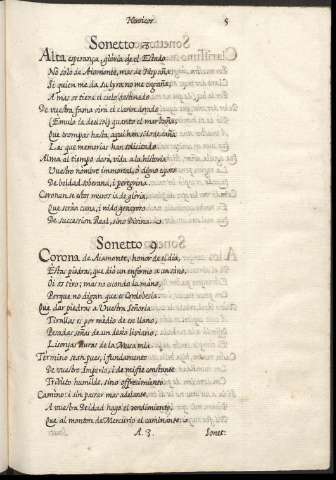 Heroicos. 5
Sonetto 3.
Alta esperança, gloria de el Estado
No solo de Aiamonte, mas de España;
Si quien me da su lyra no me engaña,
A mas os tiene el cielo destinado
De vuestra fama oirà el clarin dorado
Emulo
Que trompas hasta aqui han sido de caña
Las que memorias han solicitado
Alma al tiempo darà, vida a la historia
Vuestro nombre immortal, ô digno esposo
De beldad soberana, i peregrina.
Coronense estos muros ia de gloria,
Que seràn cuna, i nido generoso
De succession Real, sino Divina.
Sonetto 9
Corona de Aiamonte, honor de el dia,
Estas piedras, que diò un enfermo a un sano,
Oi os tiro; mas no escondo la mano,
Porque no digan que es Cordobesia.
Que dar piedras a Vuestra Señoria
Tirallas es por medio de esse llano,
Pesadas señas de un desseo liviano,
Lisonjas duras de la Musa mia
Termino sean pues, i fundamento
De vuestro Imperio, i de mi fee constante
Tributo humilde, sino offrecimiento.
Camino: i sin passar mas adelante
A vuestra Deidad hago el rendimiento,
Que al monton de Mercurio el caminante.
A. 3. Sonet: